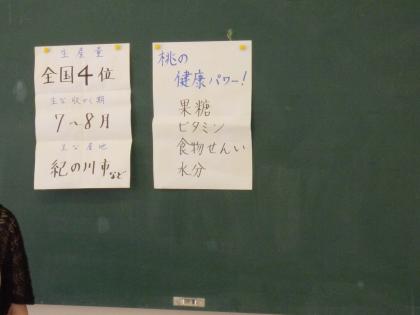 生産量
全国4位
主な収かく期
7~8月
主な産地
紀の川市など
桃の
健康パワー!
果糖
ビタミン
食物せんい
水分